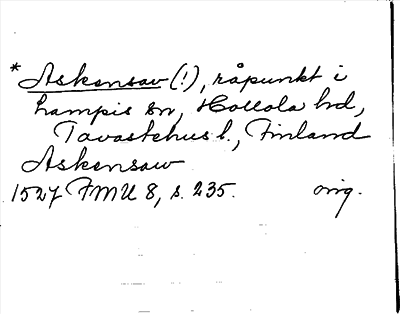 * Askensaw (!), råpunkt i
Lampis sn, Hollola hd,
Tavastehus l., Finland
Askensaw
1527 FMU 8, s. 235. orig.